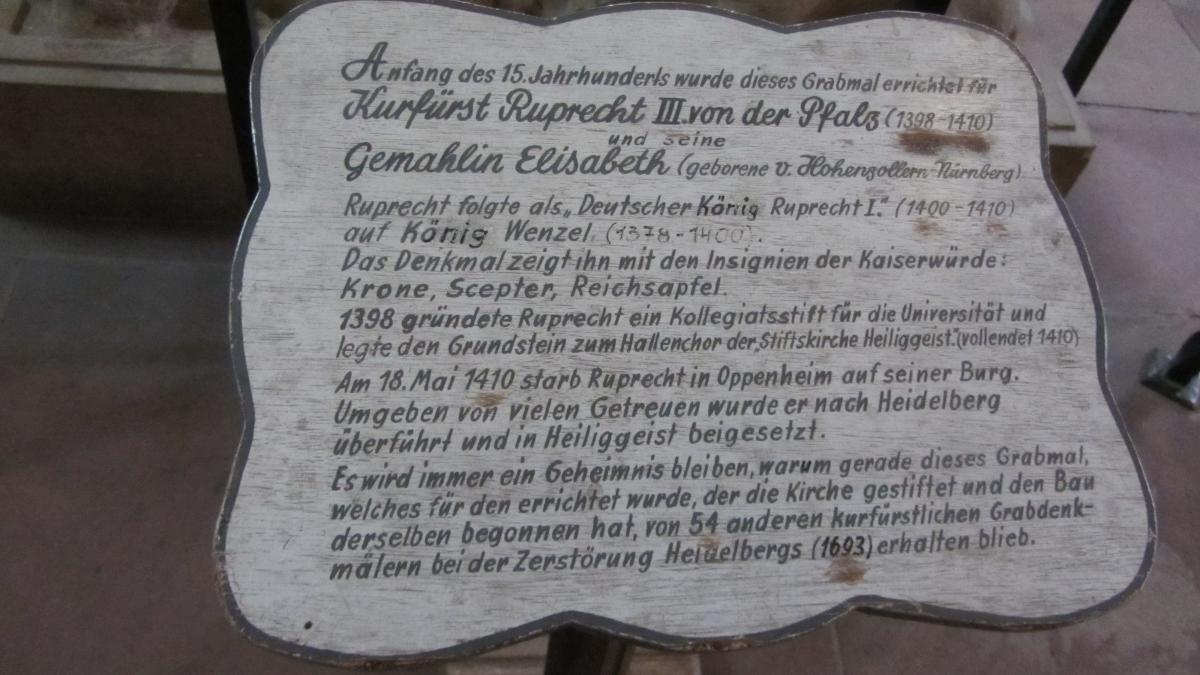 Anfang des 15. Jahrhunderts wurde dieses Grabmal errichtet für
Kurfürst Ruprecht III. von der Pfalz (1398-1410)
und seine
Gemahlin Elisabeth (geborene v. Hohenzollern-Nürnberg)
Ruprecht folgte als „Deutscher König Ruprecht I." (1400-1410)
auf König Wenzel. (1378-1400).
Das Denkmal zeigt ihn mit den Insignien der Kaiserwürde:
Krone, Scepter, Reichsapfel.
1398 gründete Ruprecht ein Kollegiatsstift für die Universität und
legte den Grundstein zum Hallenchor der „Stiftskirche Heiliggeist". (vollendet 1410)
Am 18. Mai 1410 starb Ruprecht in Oppenheim auf seiner Burg.
Umgeben von vielen Getreuen wurde er nach Heidelberg
überführt und in Heiliggeist beigesetzt.
Es wird immer ein Geheimnis bleiben, warum gerade dieses Grabmal,
welches für den errichtet wurde, der die Kirche gestiftet und den Bau
derselben begonnen hat, von 54 anderen kurfürstlichen Grabdenk-
mälern bei der Zerstörung Heidelbergs (1693) erhalten blieb.